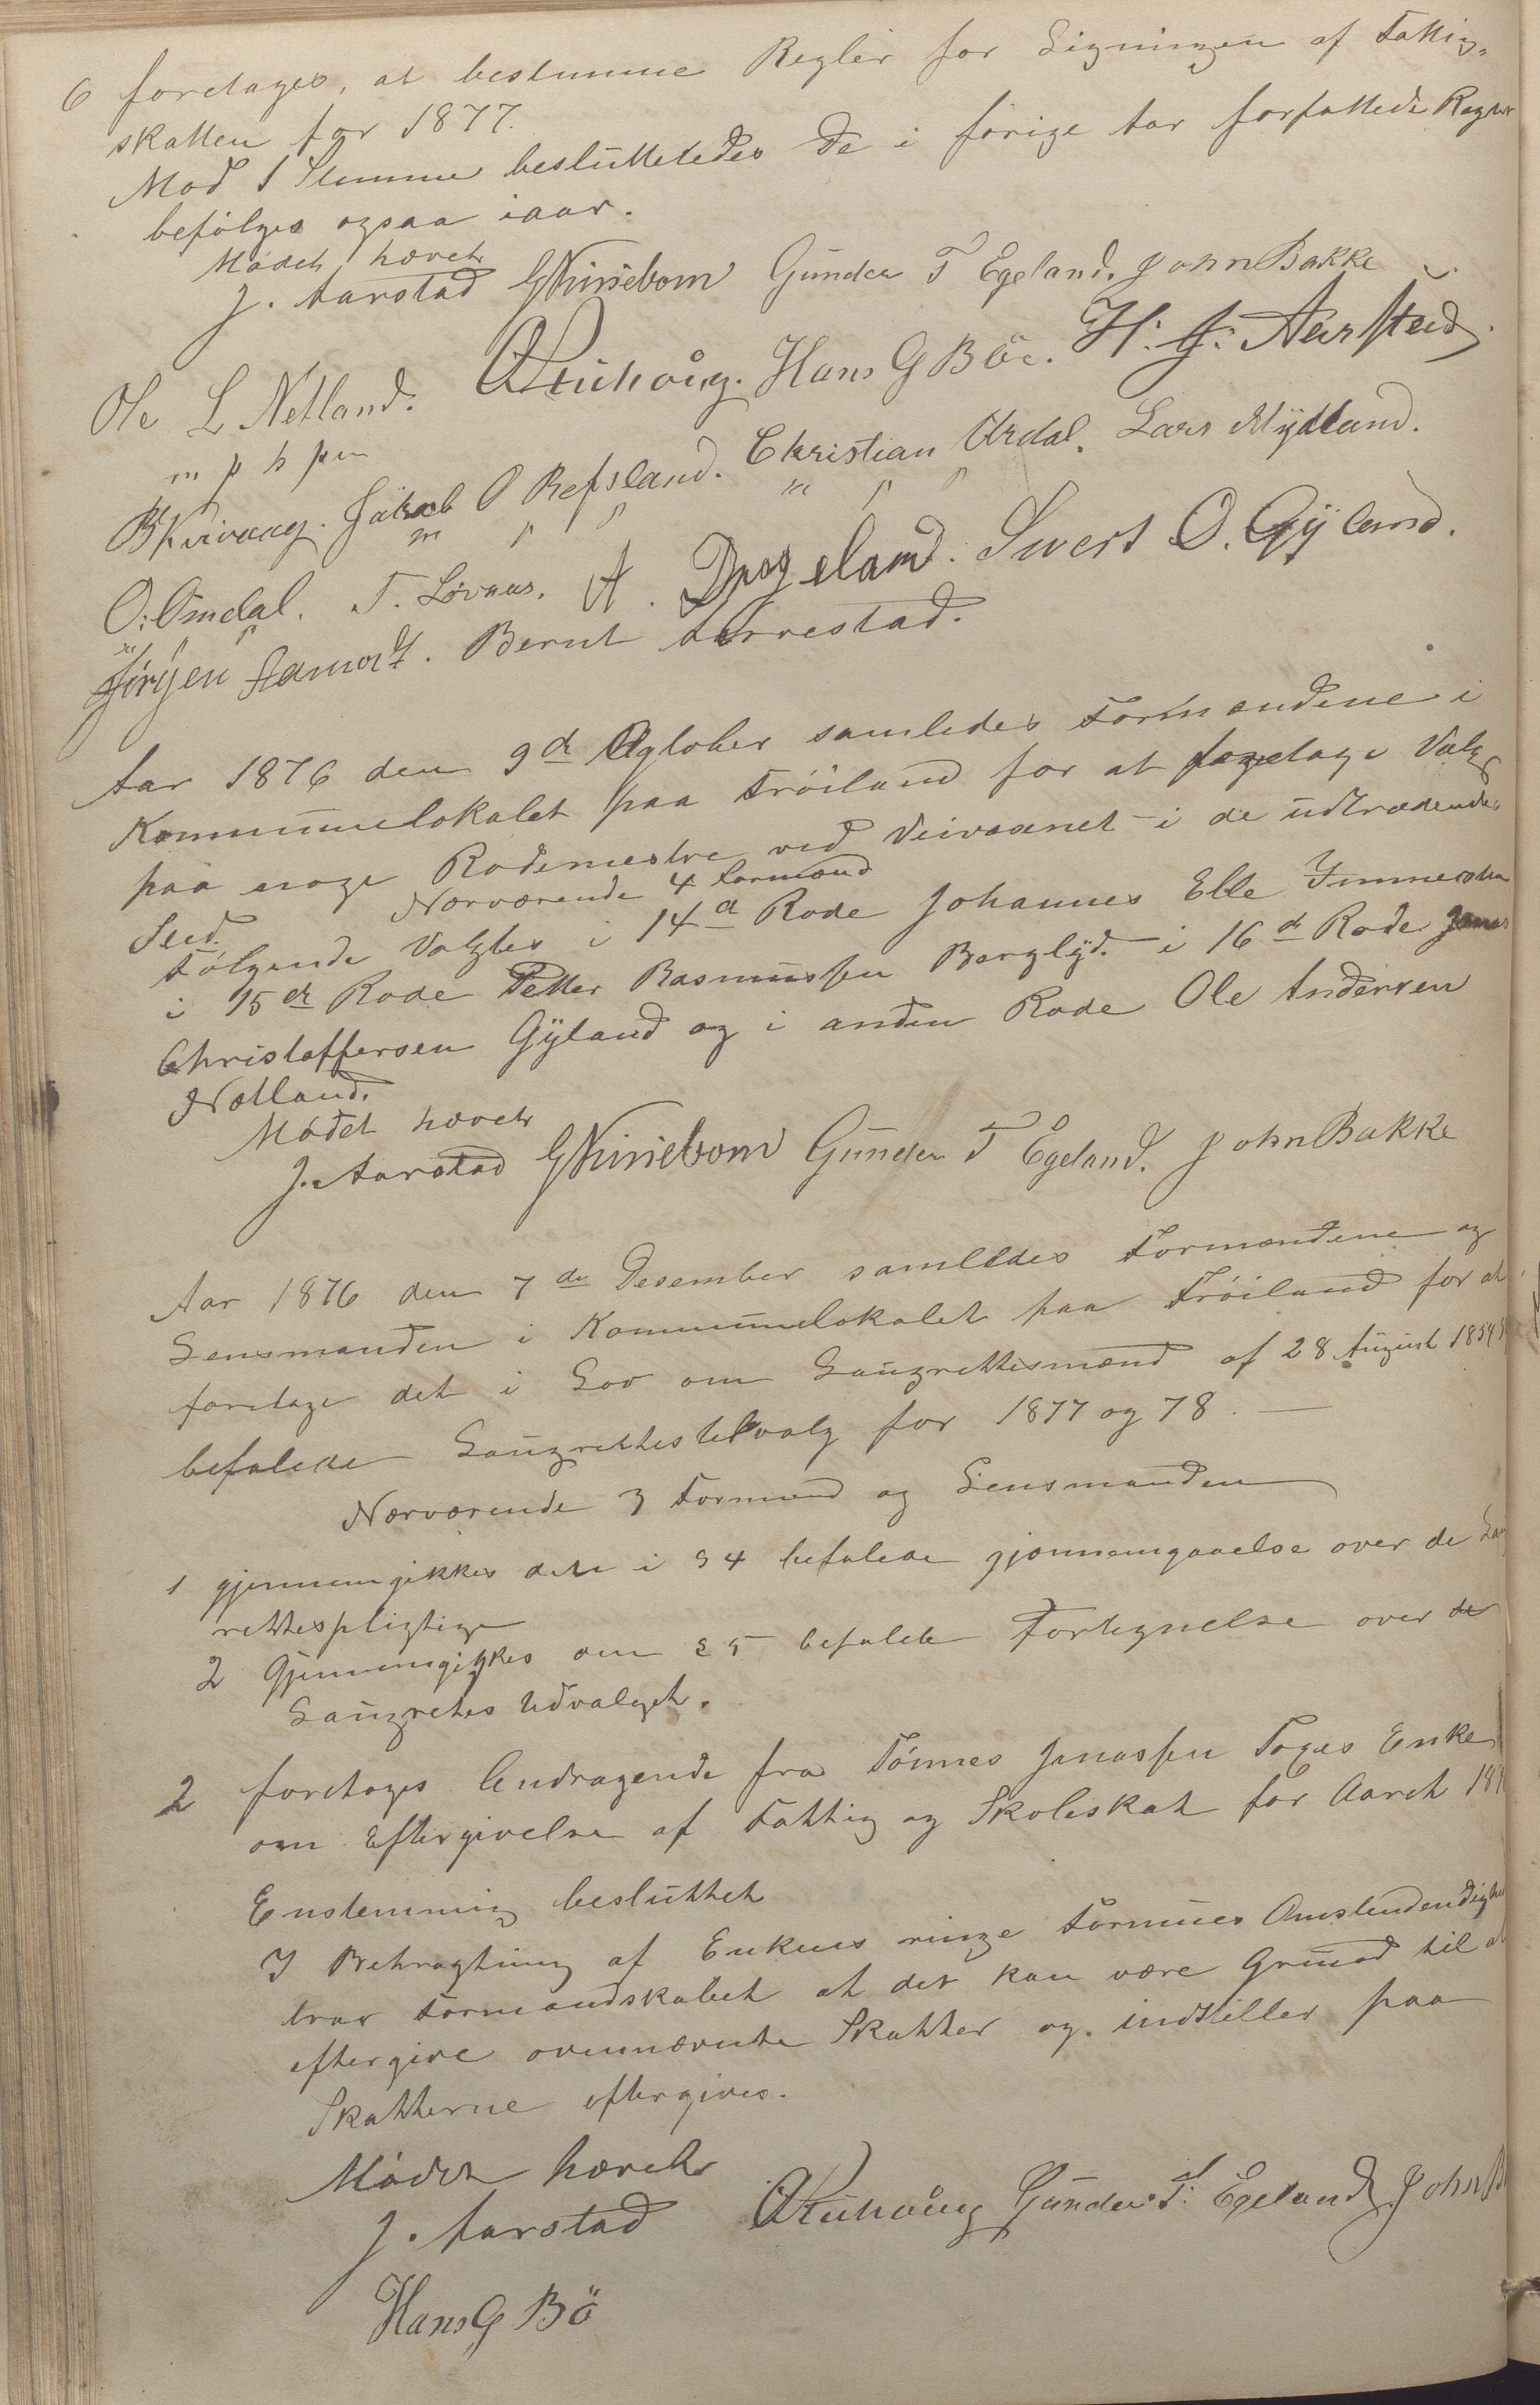 6 foretages, at bestemme Regler for Ligningen af Fattig-
skatten for 1877.
Mod 1 Stemme besluttetedes de i forige Aar forfattede Regler
befølges ogsaa iaar.
Mødet hævet
J. Aarstad Gunder T Egeland. John Bakke
Ole L Netland. Hans G Böe. H. J. Aarstad
m p h pen
Jakob O Refsland. Christian Urdal. Lars Mydland.
m p p m p p
O. Omdal. T. Lövaas. A. Sivert O. Gyland.
Jörgen Aamodt. Bernt Aarrestad.
Aar 1876 den 9de Ogtober samledes Formændene i
Kommunelokalet paa Tröiland for at foretage Valg
paa noge Rodemestre ved Veivæsenet i de udtrædendes
Sted. Nærværende 4 formænd
Følgende Valgtes i 14de Rode Johannes Elle
i 15de Rode Petter Rasmussen Berglyd. i 16de Rode Jonas
Christoffersen Gyland og i anden Rode Ole Andersen
Nætland.
Mødet hævet
J. Aarstad Gunder T Egeland. John Bakke
Aar 1876 den 7de Desember samledes Formændene og
Lensmanden i Kommunelokalet paa Tröiland for at
foretage det i Lov om Laugrettesmænd af 28 August 1854
befalede Laugrettesudvalg for 1877 og 78. —
Nærværende 3 Formænd og Lensmanden
1 gjennemgikkes den i § 4 befalede gjennemgaaelse over de Lau
rettespligtige
2 Gjennemgikkes den § 5 befalede Fortegnelse over de
Laugrettes Udvalget.
2 foretoges Andragende fra Tönnes Jonassen Enke
om Eftergivelse af Fattig og Skoleskat for Aaret 187
Enstemmig besluttet
I Betragtning af Enkens ringe Formues Omstendendighe
tror Formandskabet at der kan være Grund til at
eftergive ovennævnte Skatter og indstiller paa
Skatterne eftergives.
Mødet hævet
J. Aarstad Gunder T. Egeland John B
Hans G Bö